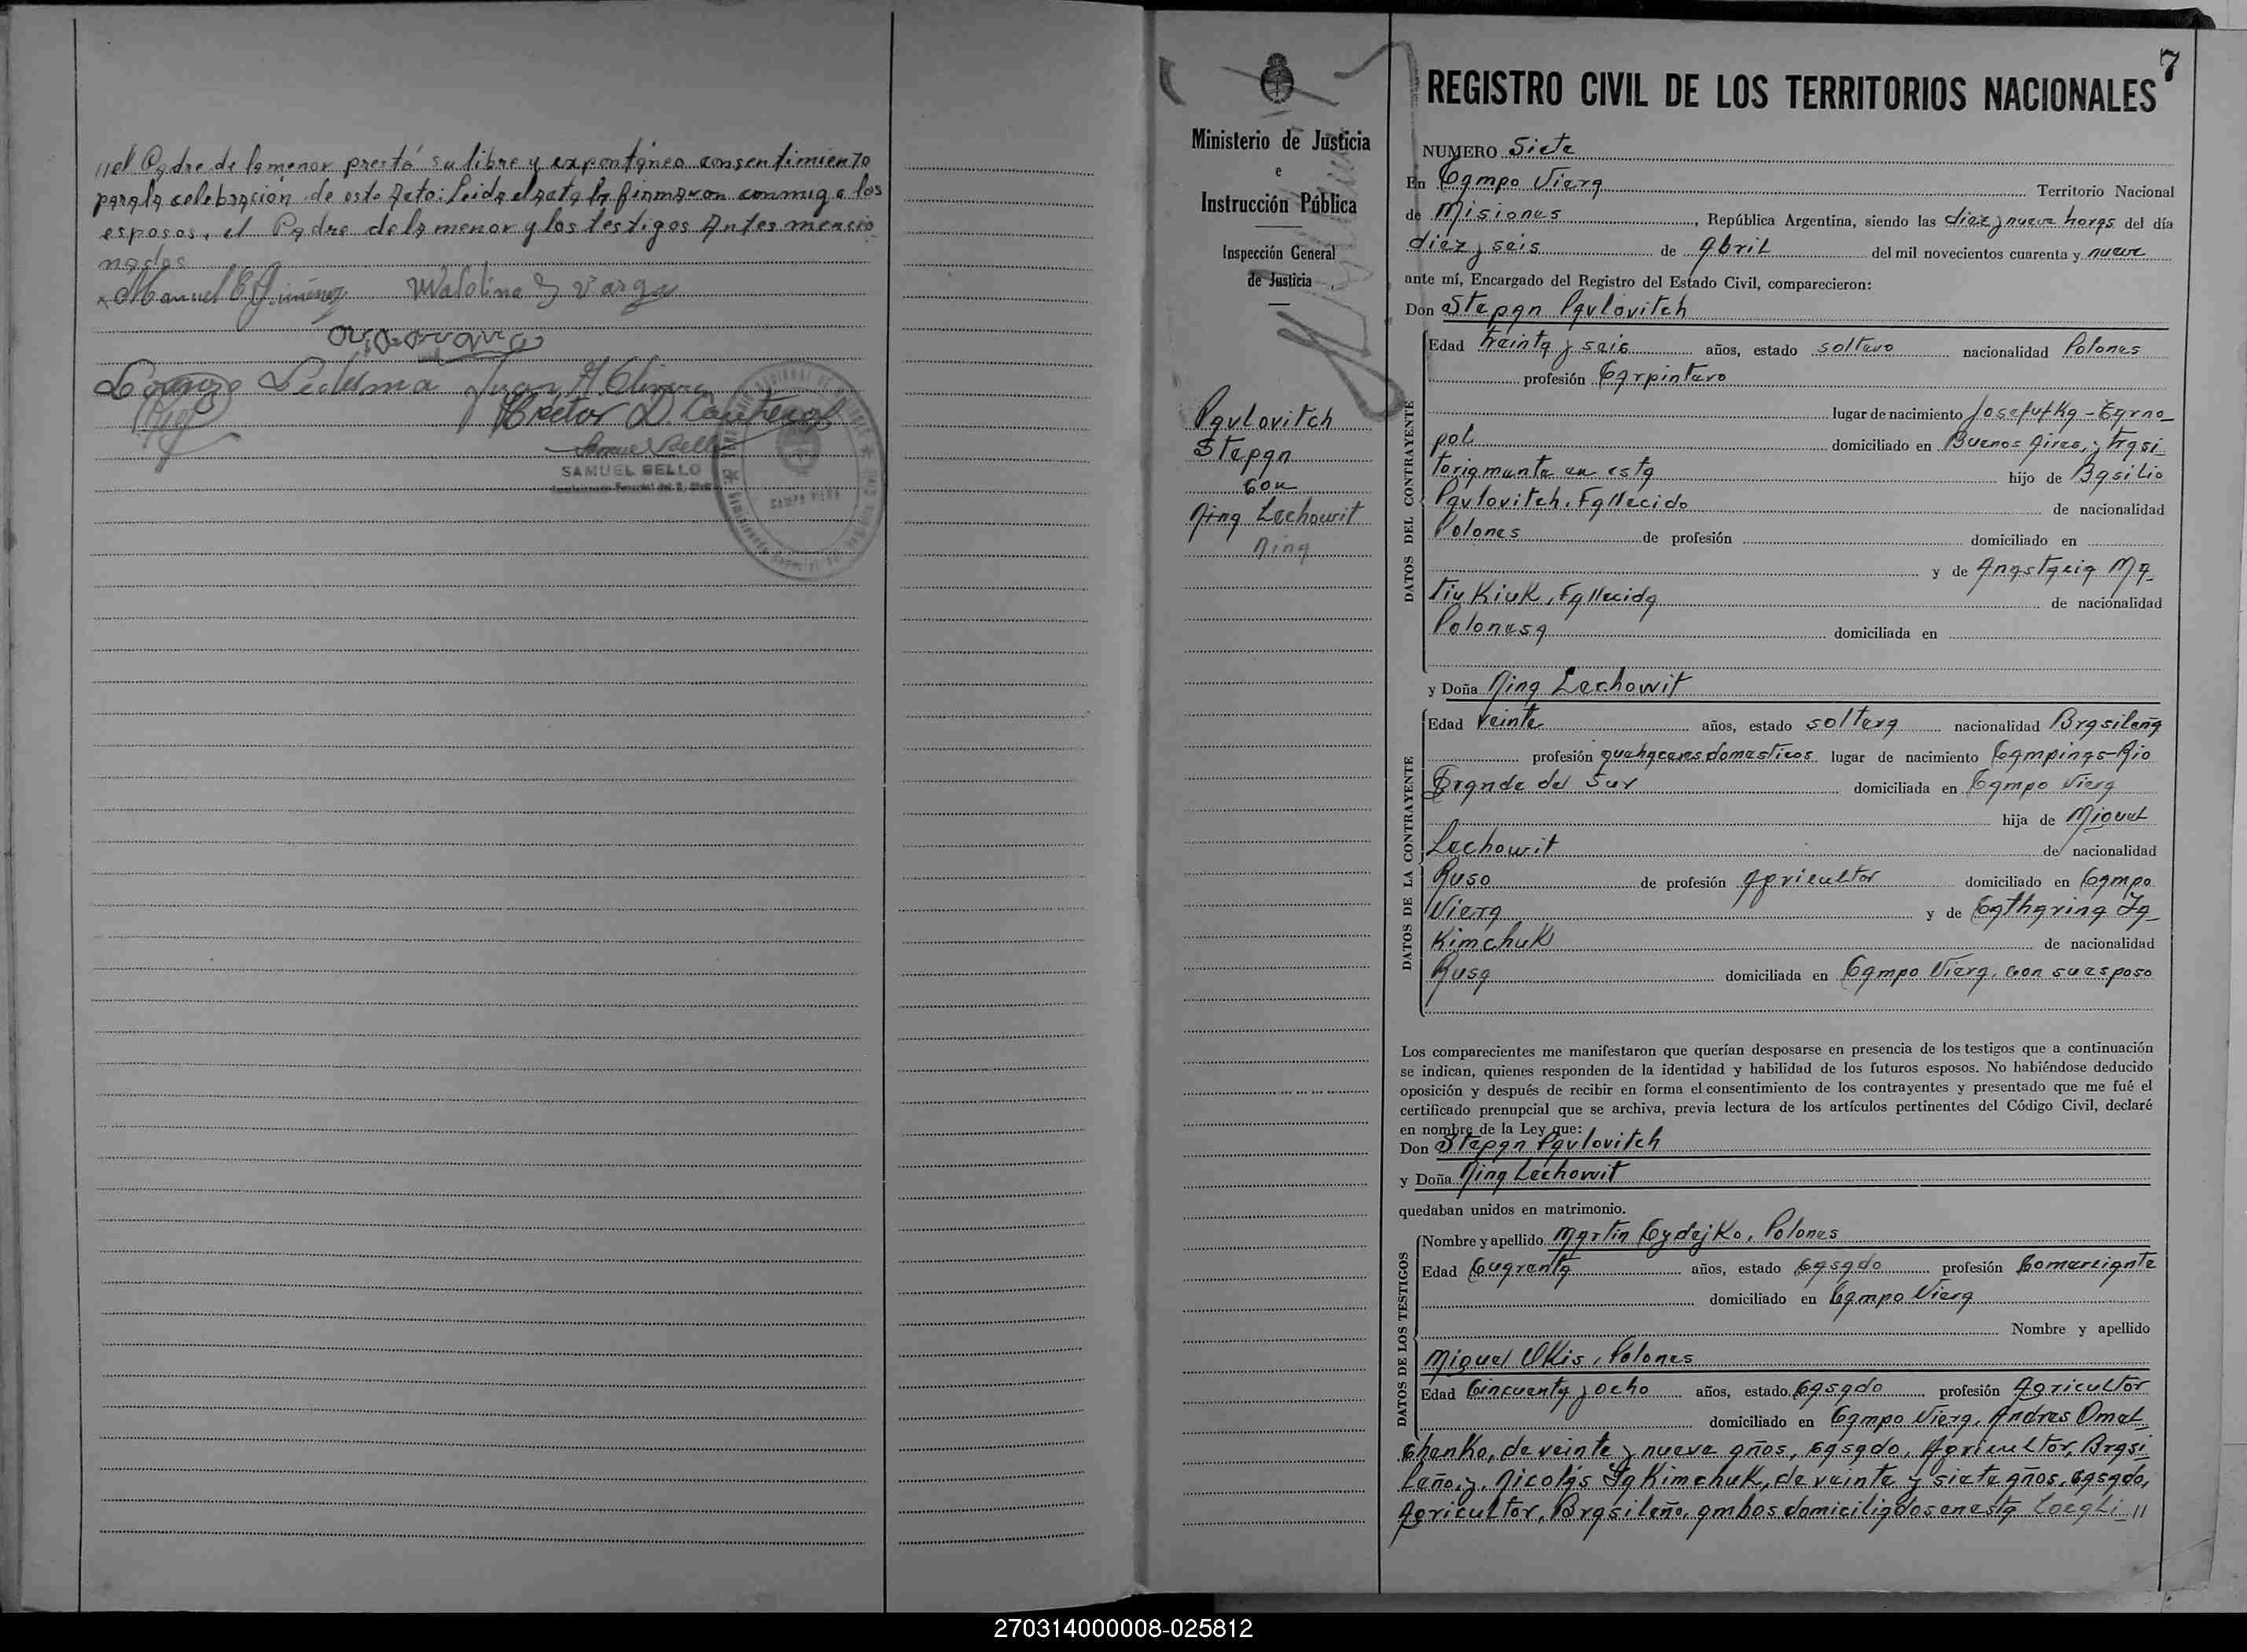 //el Padre de la menor prestó su libre y expontáneo consentimiento
para la celebración de este Acto: Leida el acta la firmaron conmigo los
esposos, el Padre de la menor y los testigos Antes mencio
nados
Manuel E. Jiménez
Lorenzo Ledesma Juan A. Olivera
Hector D. Contreras
Samuel Bello
SAMUEL BELLO
CAMPO VIERA
Ministerio de Justicia
e
Instrucción Pública
Inspección General
de Justicia
Pavlovitch
Stepan
con
Nina Lechowit
Nina
7
REGISTRO CIVIL DE LOS TERRITORIOS NACIONALES
NUMERO Siete
En Campo Viera Territorio Nacional
de Misiones, República Argentina, siendo las diez y nueve horas del día
diez y seis de Abril del mil novecientos cuarenta y nueve
ante mí, Encargado del Registro del Estado Civil, comparecieron:
Don Stepan Pavlovitch
DATOS DEL CONTRAYENTE
Edad treinta y seis años, estado soltero nacionalidad Polones
profesión Carpintero
lugar de nacimiento Josefufka-Tarno_
pol domiciliado en Buenos Aires, y trasi_
toriamente en esta hijo de Basilio
Pavlovitch, Fallecido de nacionalidad
Polones de profesión domiciliado en
y de Anastacia Ma_
tiukiuk, Fallecida de nacionalidad
Polonesa domiciliada en
y Doña Nina Lechowit
DATOS DE LA CONTRAYENTE
Edad veinte años, estado soltera nacionalidad Brasileña
profesión quehaceres domesticos lugar de nacimiento Campinas-Rio
Grande del Sur domiciliada en Campo Viera
hija de Miguel
Lechowit de nacionalidad
Ruso de profesión Agricultor domiciliado en Campo
Viera y de Catharina Ja_
kimchuk de nacionalidad
Rusa domiciliada en Campo Viera, con su esposo
Los comparecientes me manifestaron que querían desposarse en presencia de los testigos que a continuación
se indican, quienes responden de la identidad y habilidad de los futuros esposos. No habiéndose deducido
oposición y después de recibir en forma el consentimiento de los contrayentes y presentado que me fué el
certificado prenupcial que se archiva, previa lectura de los artículos pertinentes del Código Civil, declaré
en nombre de la Ley que:
Don Stepan Pavlovitch
y Doña Nina Lechowit
quedaban unidos en matrimonio.
DATOS DE LOS TESTIGOS
Nombre y apellido Martin Cydejko, Polones
Edad Cuarenta años, estado Casado profesión Comerciante
domiciliado en Campo Viera
Nombre y apellido
Miguel Okis, Polones
Edad Cincuenta y ocho años, estado Casado profesión Agricultor
domiciliado en Campo Viera, Andres Omel_
chenko, de veinte y nueve años, casado, Agricultor, Brasi_
leño, y, Nicolás Jakimchuk, de veinte y siete años, casado,
Agricultor, Brasileño, ambos domiciliados en esta Locali_//
270314000008-025812